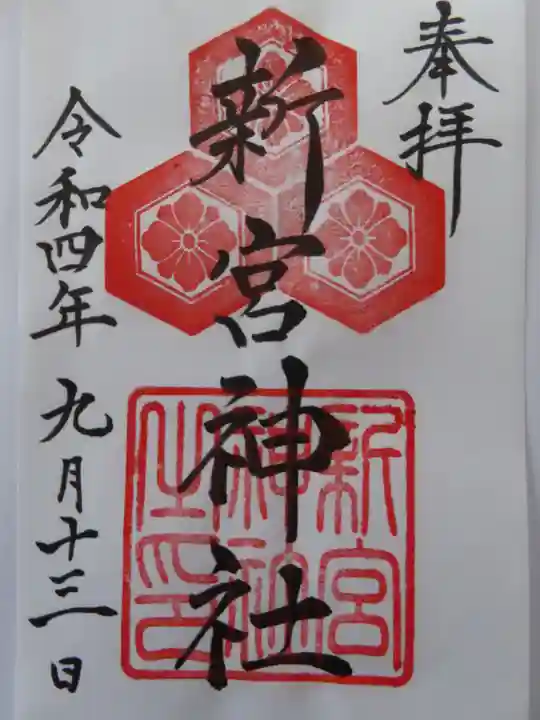 奉拝
新宮神社
新宮
神社
之印
令和四年九月十三日